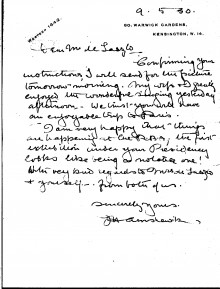 9. 5. 30.
WESTERN 1643
90. WARWICK GARDENS,
KENSINGTON, W. 14.
Dear Mr de Laszlo
Confirming your
instructions I will send for the picture
tomorrow morning. My wife & I greatly
enjoyed the wonderful singing yesterday
afternoon. We trust you will have
an enjoyable trip to Paris.
I am very happy that things
are happening at the R.B.A., the first
exhibition under your Presidency
looks like being a notable one!
With very kind regards to Mrs de Laszlo
& yourself from both of us.
Sincerely yours.